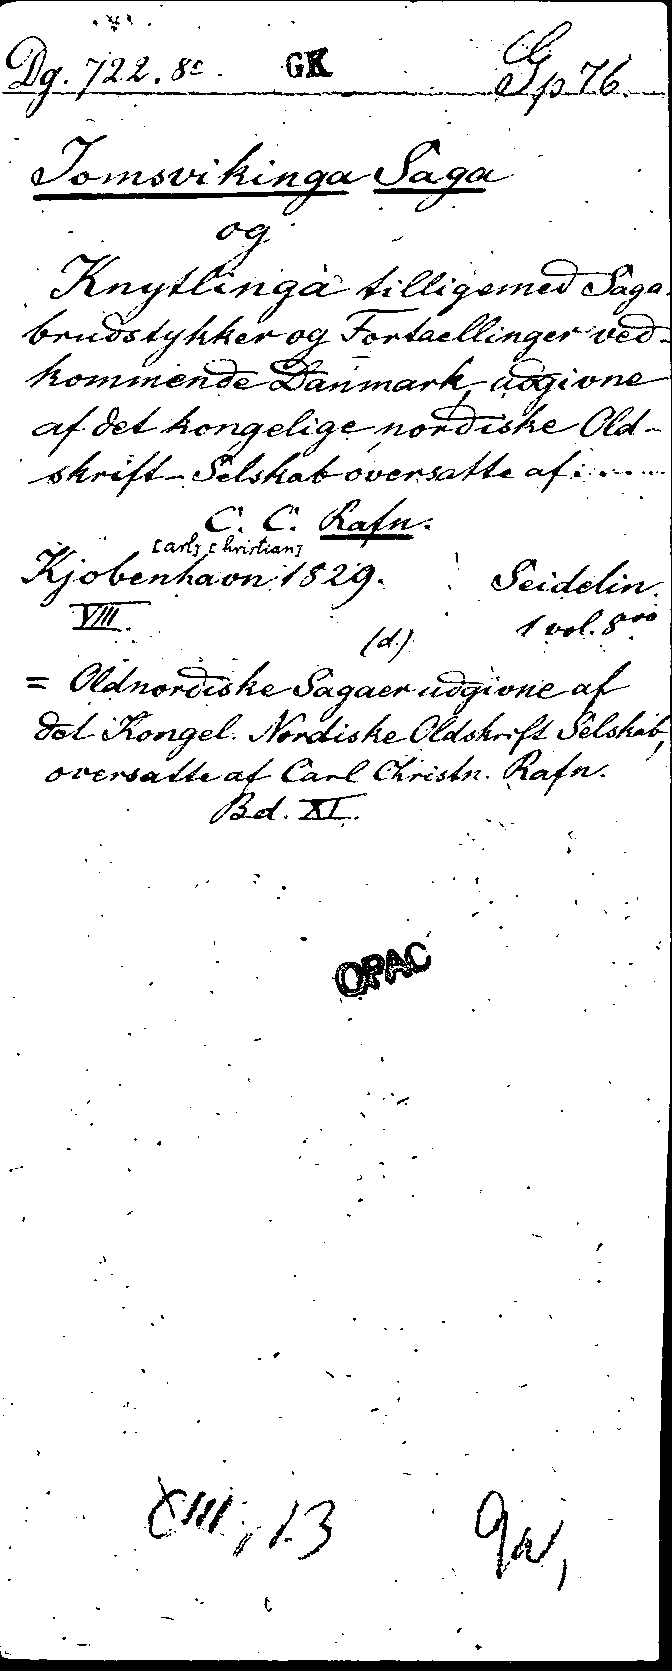 Dg. 722. 8c. GK Gp 76.
Jomsvikinga Saga
og
Knytlinga tilligemed Saga-
brudstykker og Fortaellinger ved-
kommende Danmark, udgivne
af det kongelige nordiske Old-
skrift-Selskab oversatte af.......
C. C. Rafn.
[arl] [hristian]
Kjobenhavn 1829. Seidelin.
VIII. 1 vol. 8vo
(d.)
= Oldnordiske Sagaer udgivne af
det Kongel. Nordiske Oldskrift Selskab,
oversatte af Carl Christn. Rafn.
Bd. XI.
OPAC
XIII, 13